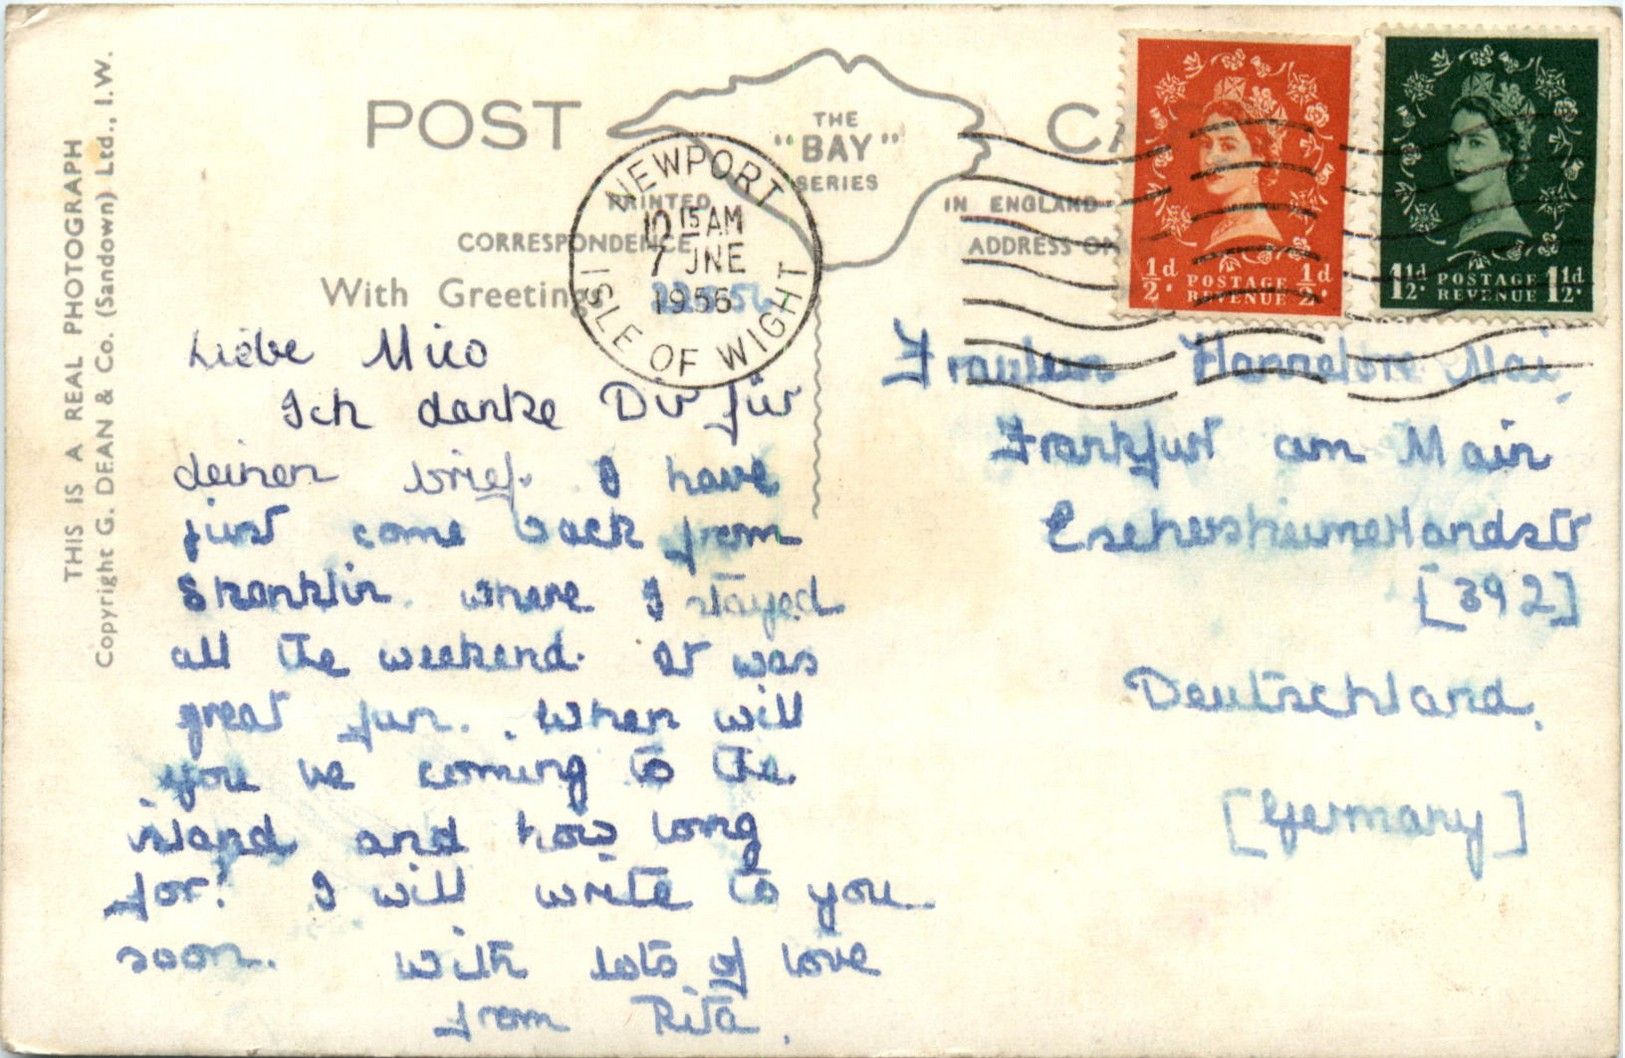 THIS IS A REAL PHOTOGRAPH
Copyright G. DEAN & Co. (Sandown) Ltd., I.W.
POST CA
THE
"BAY"
SERIES
PRINTED IN ENGLAND
CORRESPONDENCE ADDRESS ON
With Greetings
NEWPORT
10 15 AM
7 JNE
1956
ISLE OF WIGHT
½d POSTAGE REVENUE ½d
1½d POSTAGE REVENUE 1½d
Liebe Mico
Ich danke Dir für
deinen brief. I have
just come back from
Shanklin where I stayed
all the weekend. It was
great fun. When will
you be coming to the
island and how long
for? I will write to you
soon. With lots of love
from Rita.
Fraulein Hannelore Mai,
Frankfurt am Main
Eschersheimerlandstr
[392]
Deutschland.
[Germany]